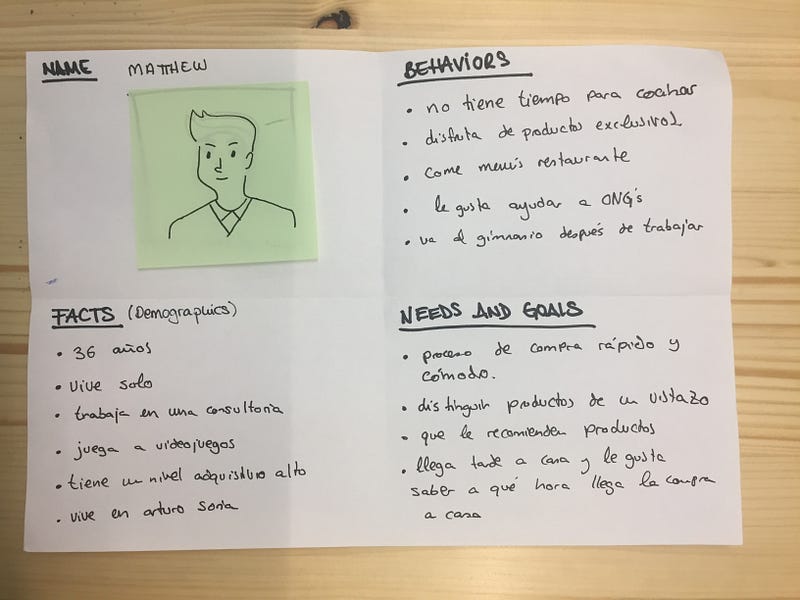 NAME MATTHEW
BEHAVIORS
• no tiene tiempo para cocinar
• disfruta de productos exclusivos
• come menús restaurante
• le gusta ayudar a ONG's
• va al gimnasio después de trabajar
FACTS (Demographics)
• 36 años
• vive solo
• trabaja en una consultoria
• juega a videojuegos
• tiene un nivel adquisitivo alto
• vive en arturo soria
NEEDS AND GOALS
• proceso de compra rápido y
cómodo.
• distinguir productos de un vistazo
• que le recomienden productos
• llega tarde a casa y le gusta
saber a qué hora llega la compra
a casa